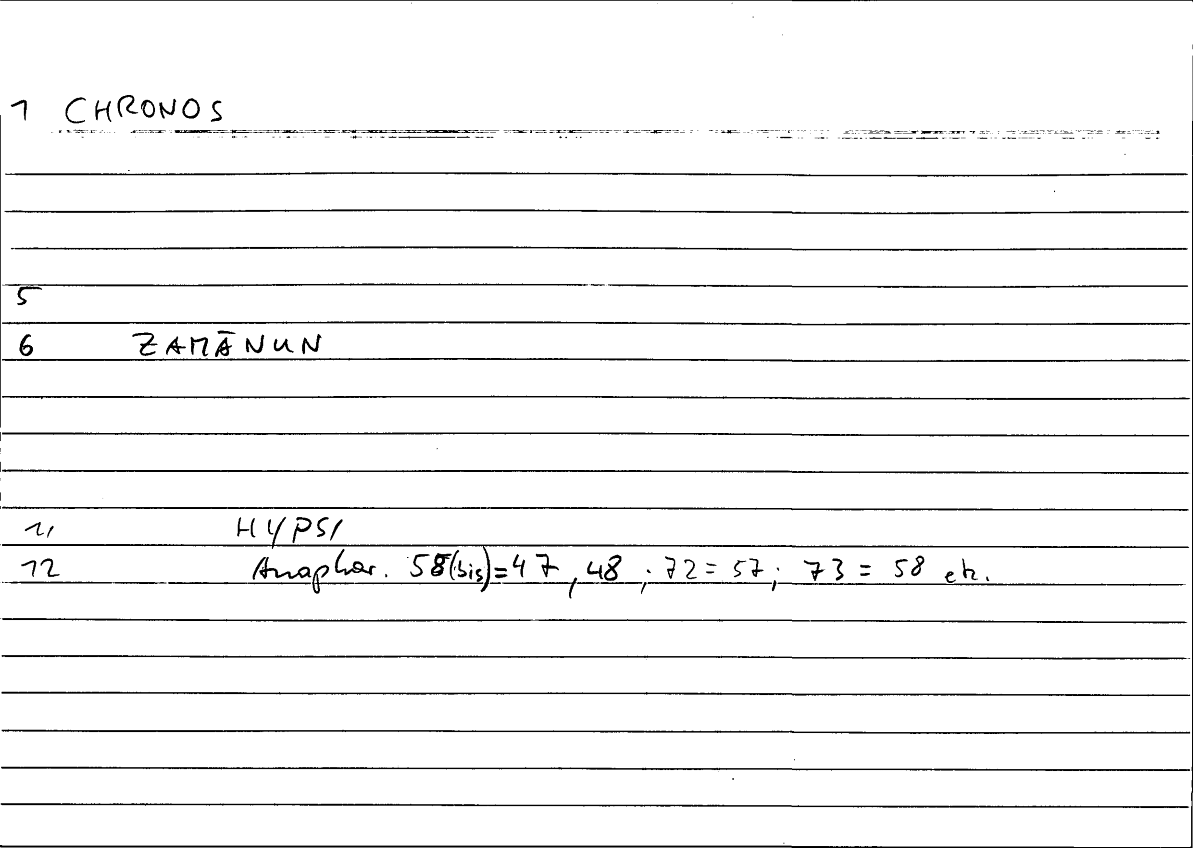 1 CHRONOS
5
6 ZAMĀNUN
11 HYPSI
12 Anaphor. 58(bis)=47, 48; 72=57; 73=58 etc.